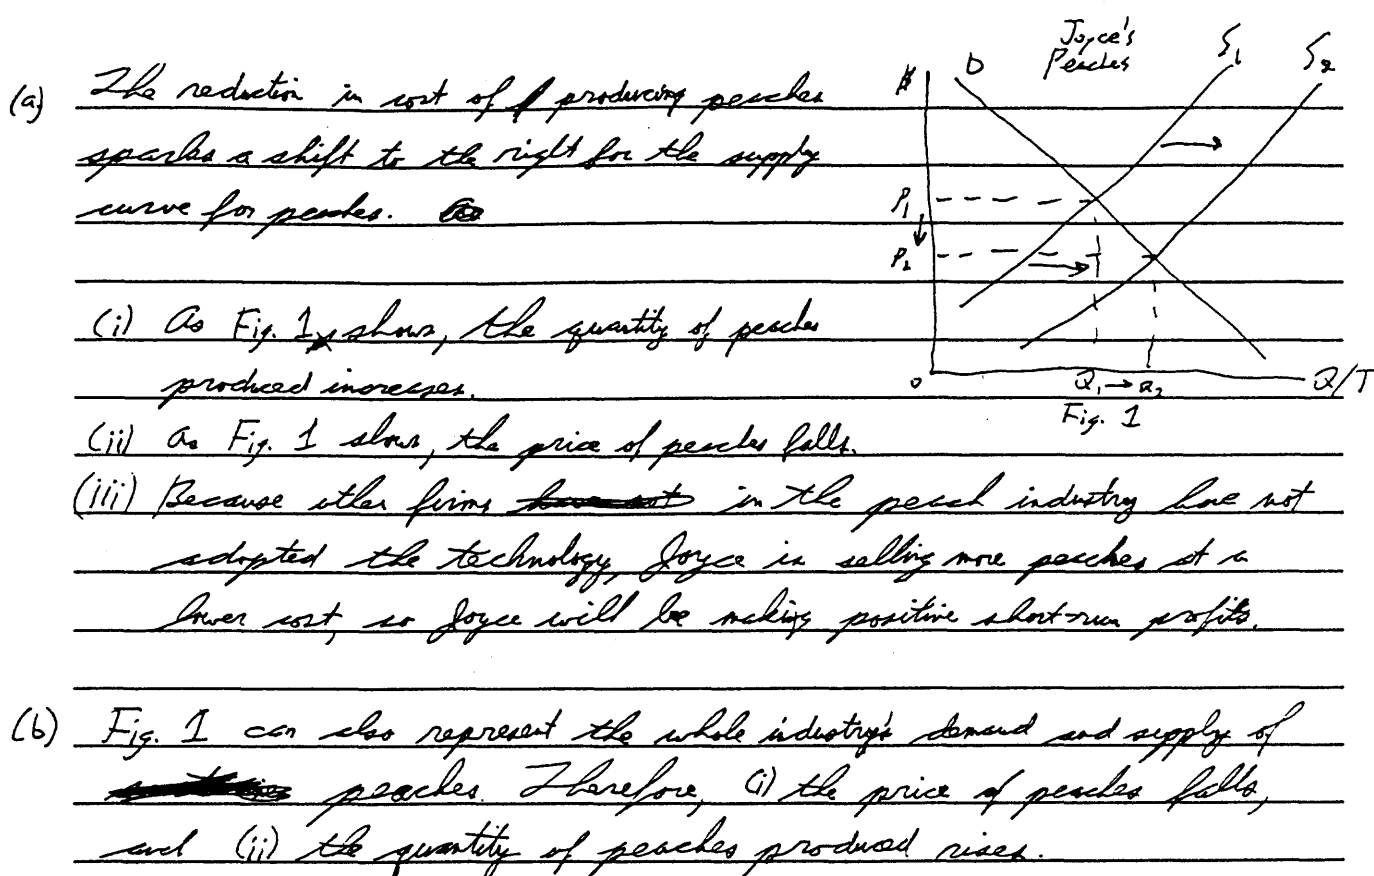 Joyce's
Peaches
D
S₁
S₂
$
P₁
P₂
0
Q₁ → Q₂
Q/T
Fig. 1
(a) The reduction in cost of producing peaches
sparks a shift to the right for the supply
curve for peaches.
(i) As Fig. 1 shows, the quantity of peaches
produced increases.
(ii) As Fig. 1 shows, the price of peaches falls.
(iii) Because other firms in the peach industry have not
adopted the technology, Joyce is selling more peaches at a
lower cost, so Joyce will be making positive short-run profits.
(b) Fig. 1 can also represent the whole industry's demand and supply of
peaches. Therefore, (i) the price of peaches falls,
and (ii) the quantity of peaches produced rises.